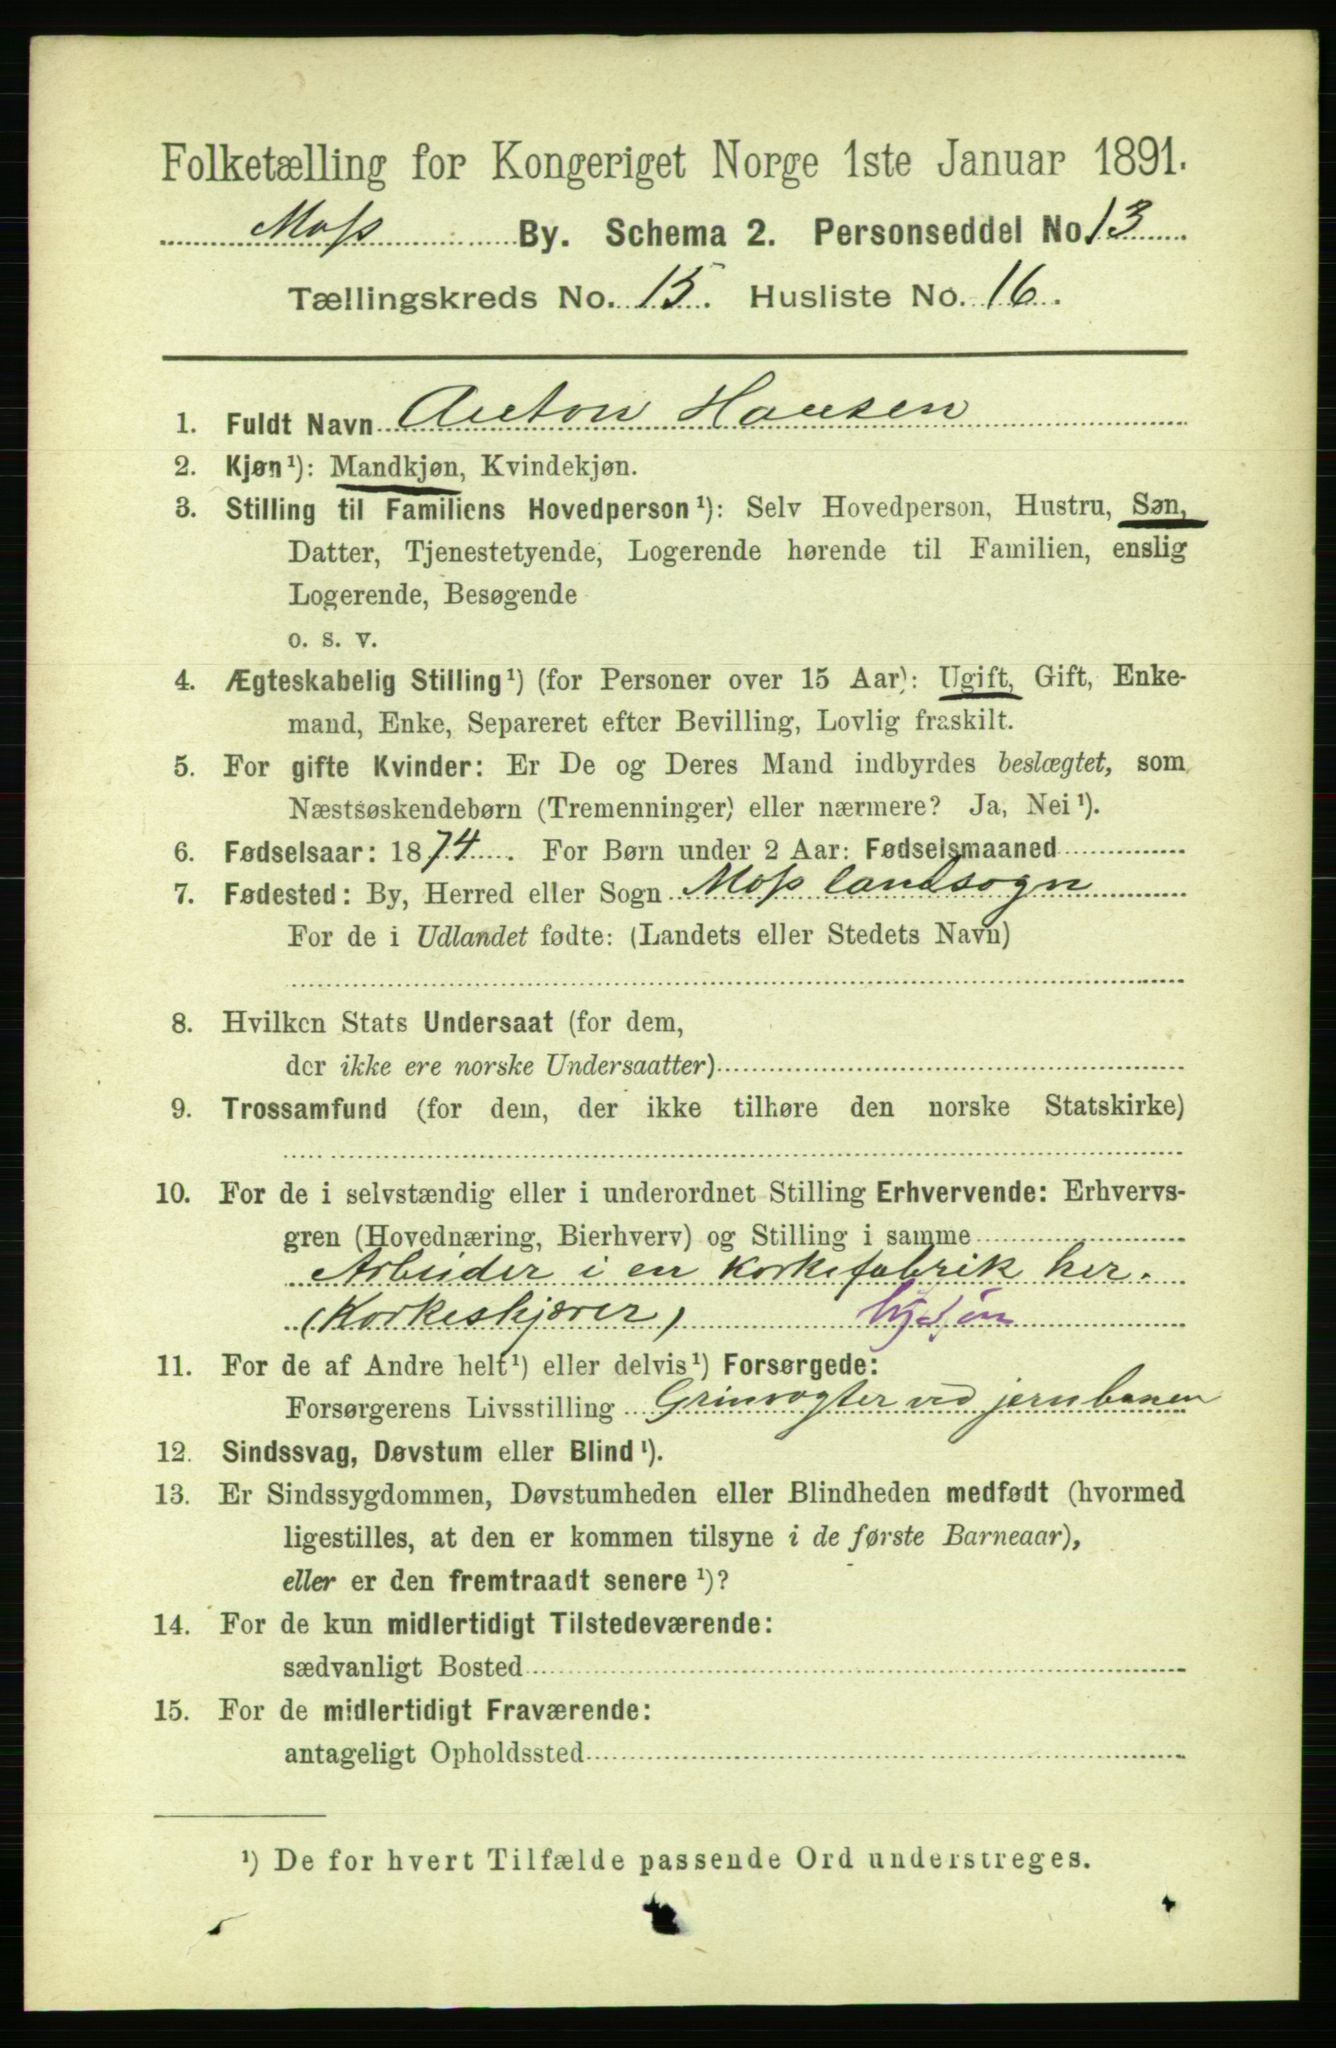 Folketælling for Kongeriget Norge 1ste Januar 1891.
Moss By. Schema 2. Personseddel No 13
Tællingskreds No. 15. Husliste No. 16.
1. Fuldt Navn Anton Hansen
2. Kjøn¹): Mandkjøn, Kvindekjøn.
3. Stilling til Familiens Hovedperson¹): Selv Hovedperson, Hustru, Søn,
Datter, Tjenestetyende, Logerende hørende til Familien, enslig
Logerende, Besøgende
o. s. v.
4. Ægteskabelig Stilling¹) (for Personer over 15 Aar): Ugift, Gift, Enke-
mand, Enke, Separeret efter Bevilling, Lovlig fraskilt.
5. For gifte Kvinder: Er De og Deres Mand indbyrdes beslægtet, som
Næstsøskendebørn (Tremenninger) eller nærmere? Ja, Nei¹).
6. Fødselsaar: 1874. For Børn under 2 Aar: Fødselsmaaned
7. Fødested: By, Herred eller Sogn Moss landsogn
For de i Udlandet fødte: (Landets eller Stedets Navn)
8. Hvilken Stats Undersaat (for dem,
der ikke ere norske Undersaatter)
9. Trossamfund (for dem, der ikke tilhøre den norske Statskirke)
10. For de i selvstændig eller i underordnet Stilling Erhvervende: Erhvervs-
gren (Hovednæring, Bierhverv) og Stilling i samme
Arbeider i en korkefabrik her.
(Korkeskjærer)
11. For de af Andre helt¹) eller delvis¹) Forsørgede:
Forsørgerens Livsstilling Grinvogter ved jernbanen
12. Sindssvag, Døvstum eller Blind¹).
13. Er Sindssygdommen, Døvstumheden eller Blindheden medfødt (hvormed
ligestilles, at den er kommen tilsyne i de første Barneaar),
eller er den fremtraadt senere¹)?
14. For de kun midlertidigt Tilstedeværende:
sædvanligt Bosted
15. For de midlertidigt Fraværende:
antageligt Opholdssted
¹) De for hvert Tilfælde passende Ord understreges.